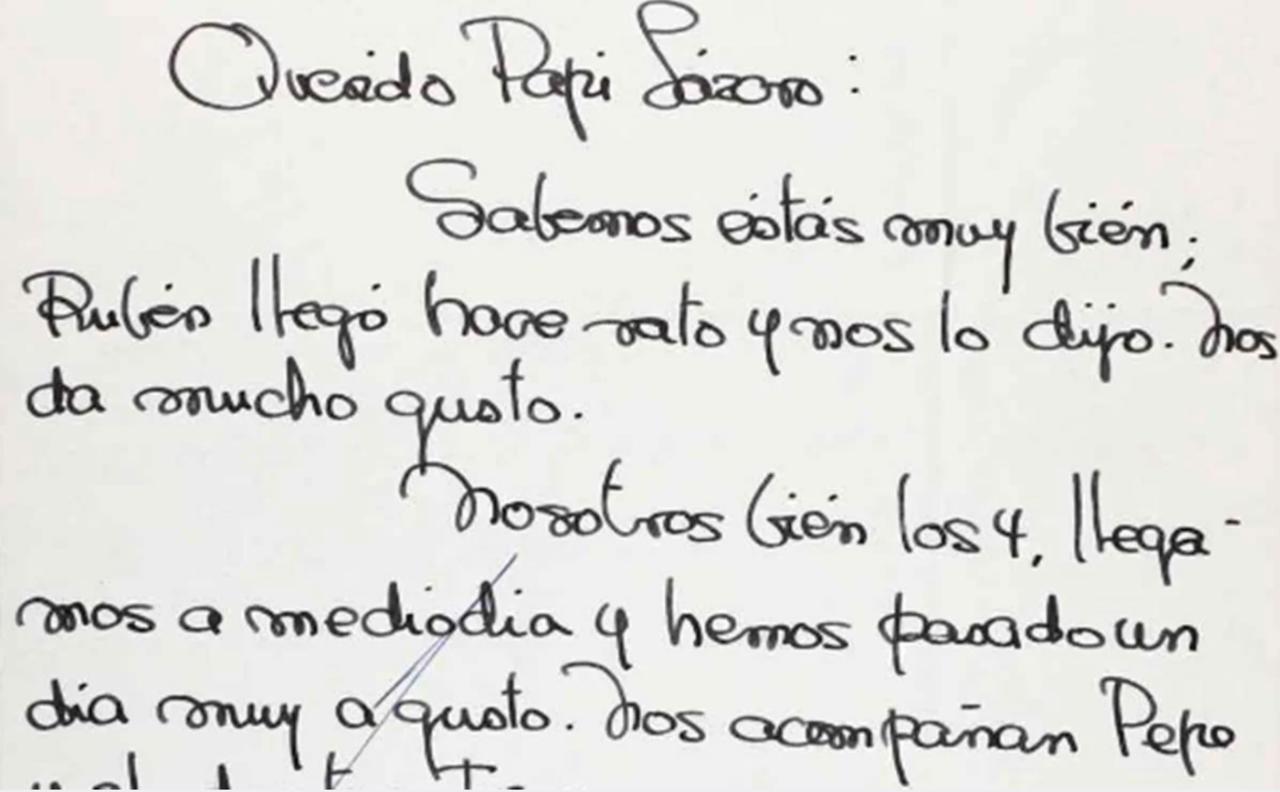 Querido Papi Lázaro:
Sabemos éstás muy bién;
Rubén llegó hace rato y nos lo dijo. Nos
da mucho gusto.
Nosotros bién los 4, llega-
mos a mediodia y hemos pasado un
dia muy a gusto. Nos acompañan Pepe